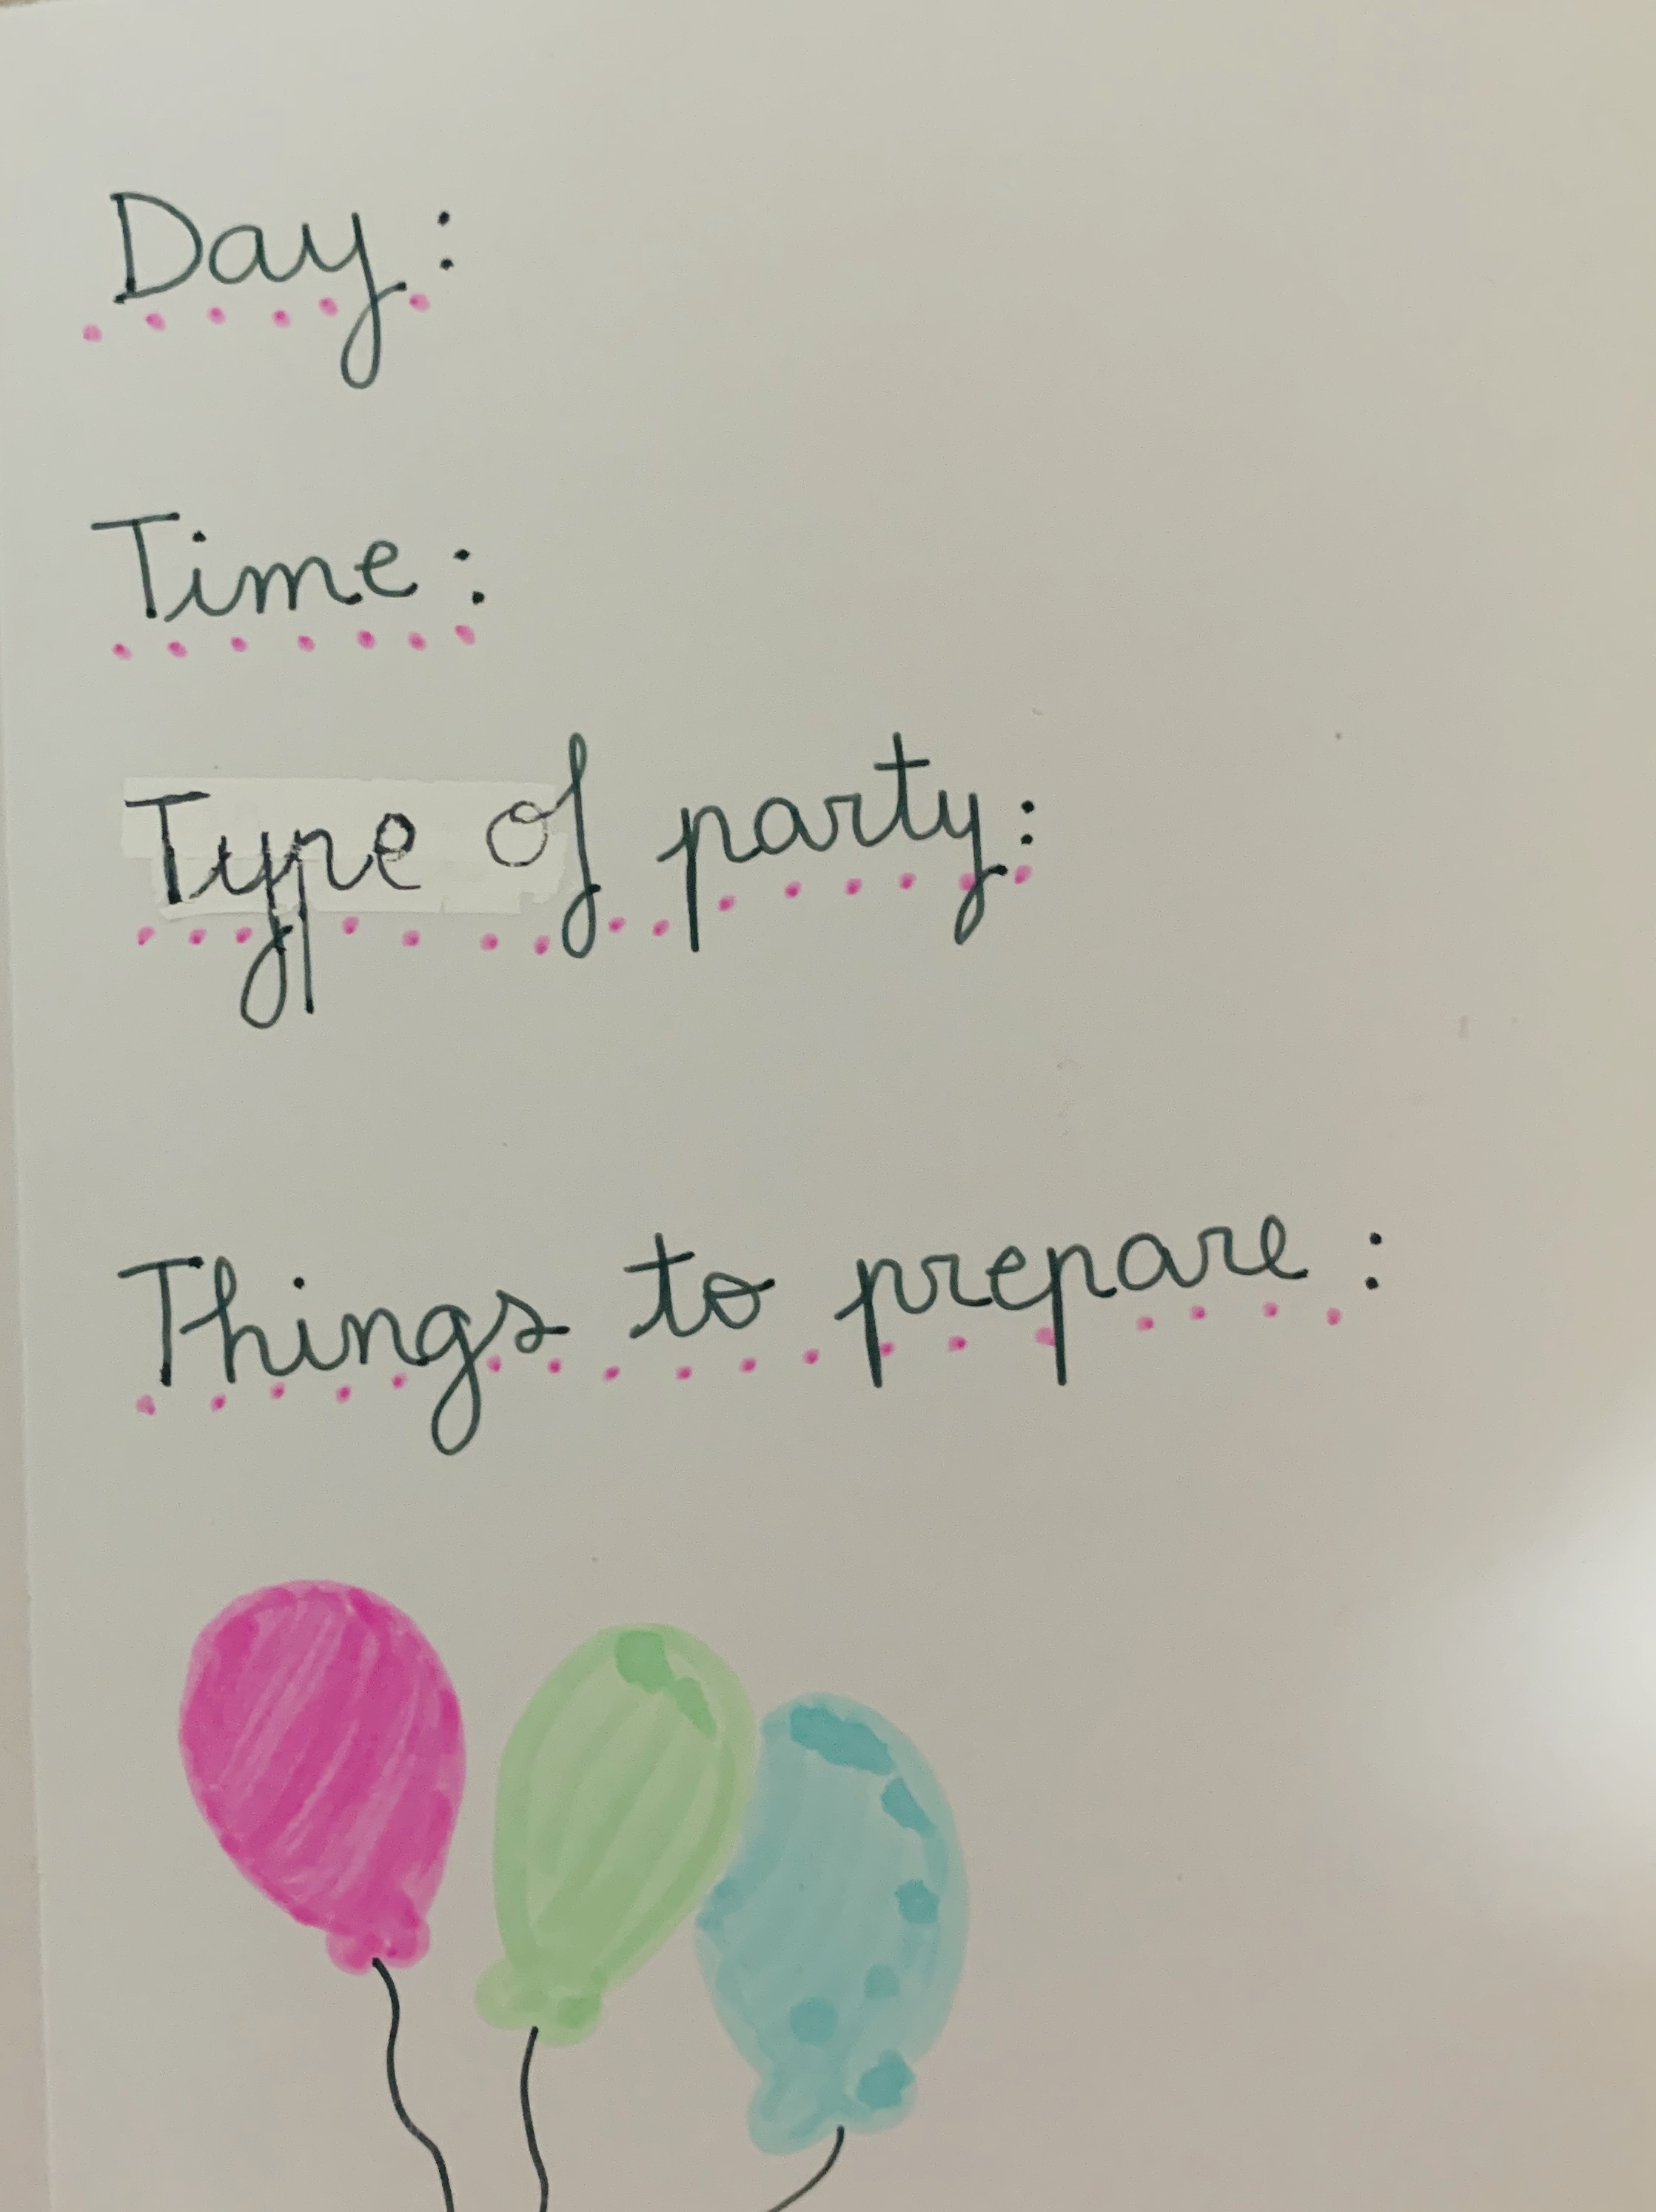 Day:
Time:
Type of party:
Things to prepare: